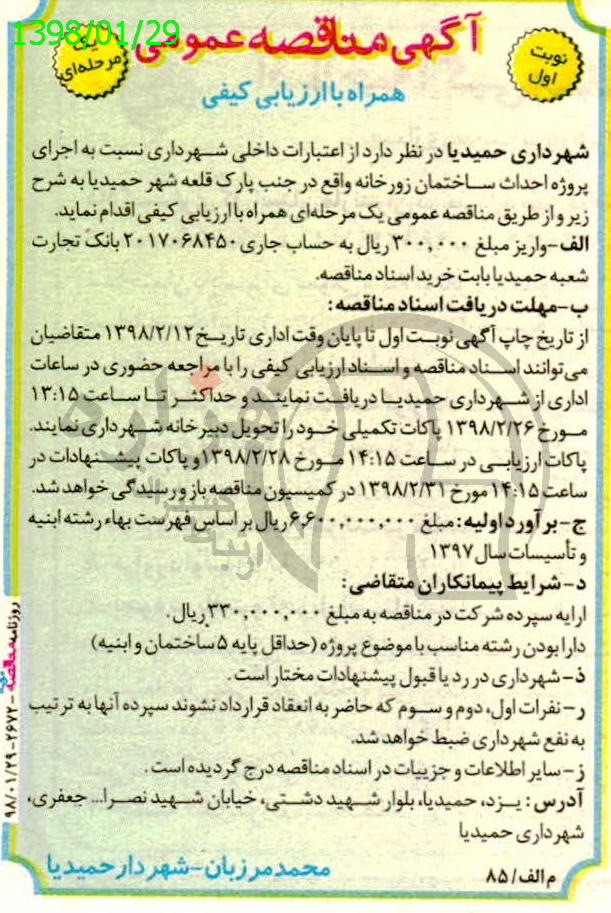 1398/01/29
آگهی مناقصه عمومی
نوبت
اول
یک
مرحله‌ای
همراه با ارزیابی کیفی
شهرداری حمیدیا در نظر دارد از اعتبارات داخلی شهرداری نسبت به اجرای
پروژه احداث ساختمان زورخانه واقع در جنب پارک قلعه شهر حمیدیا به شرح
زیر و از طریق مناقصه عمومی یک مرحله‌ای همراه با ارزیابی کیفی اقدام نماید.
الف-واریز مبلغ ۳۰۰,۰۰۰ ریال به حساب جاری ۲۰۱۷۰۶۸۴۵۰ بانک تجارت
شعبه حمیدیا بابت خرید اسناد مناقصه.
ب-مهلت دریافت اسناد مناقصه:
از تاریخ چاپ آگهی نوبت اول تا پایان وقت اداری تاریخ ۱۳۹۸/۲/۱۲ متقاضیان
می‌توانند اسناد مناقصه و اسناد ارزیابی کیفی را با مراجعه حضوری در ساعات
اداری از شهرداری حمیدیا دریافت نمایند و حداکثر تا ساعت ۱۳:۱۵
مورخ ۱۳۹۸/۲/۲۶ پاکات تکمیلی خود را تحویل دبیرخانه شهرداری نمایند.
پاکات ارزیابی در ساعت ۱۴:۱۵ مورخ ۱۳۹۸/۲/۲۸ و پاکات پیشنهادات در
ساعت ۱۴:۱۵ مورخ ۱۳۹۸/۲/۳۱ در کمیسیون مناقصه باز و رسیدگی خواهد شد.
ج-برآورد اولیه: مبلغ ۶,۶۰۰,۰۰۰,۰۰۰ ریال بر اساس فهرست بهاء رشته ابنیه
و تأسیسات سال ۱۳۹۷
د-شرایط پیمانکاران متقاضی:
ارایه سپرده شرکت در مناقصه به مبلغ ۳۳۰,۰۰۰,۰۰۰ ریال.
دارا بودن رشته مناسب با موضوع پروژه (حداقل پایه ۵ ساختمان و ابنیه)
ذ-شهرداری در رد یا قبول پیشنهادات مختار است.
ر-نفرات اول، دوم و سوم که حاضر به انعقاد قرارداد نشوند سپرده آنها به ترتیب
به نفع شهرداری ضبط خواهد شد.
ز-سایر اطلاعات و جزییات در اسناد مناقصه درج گردیده است.
آدرس: یزد، حمیدیا، بلوار شهید دشتی، خیابان شهید نصرا... جعفری،
شهرداری حمیدیا
م الف/۸۵
محمد مرزبان-شهردار حمیدیا
روزنامه مناقصه - ۲۶۷۲ - ۹۸/۰۱/۲۹
هزاره